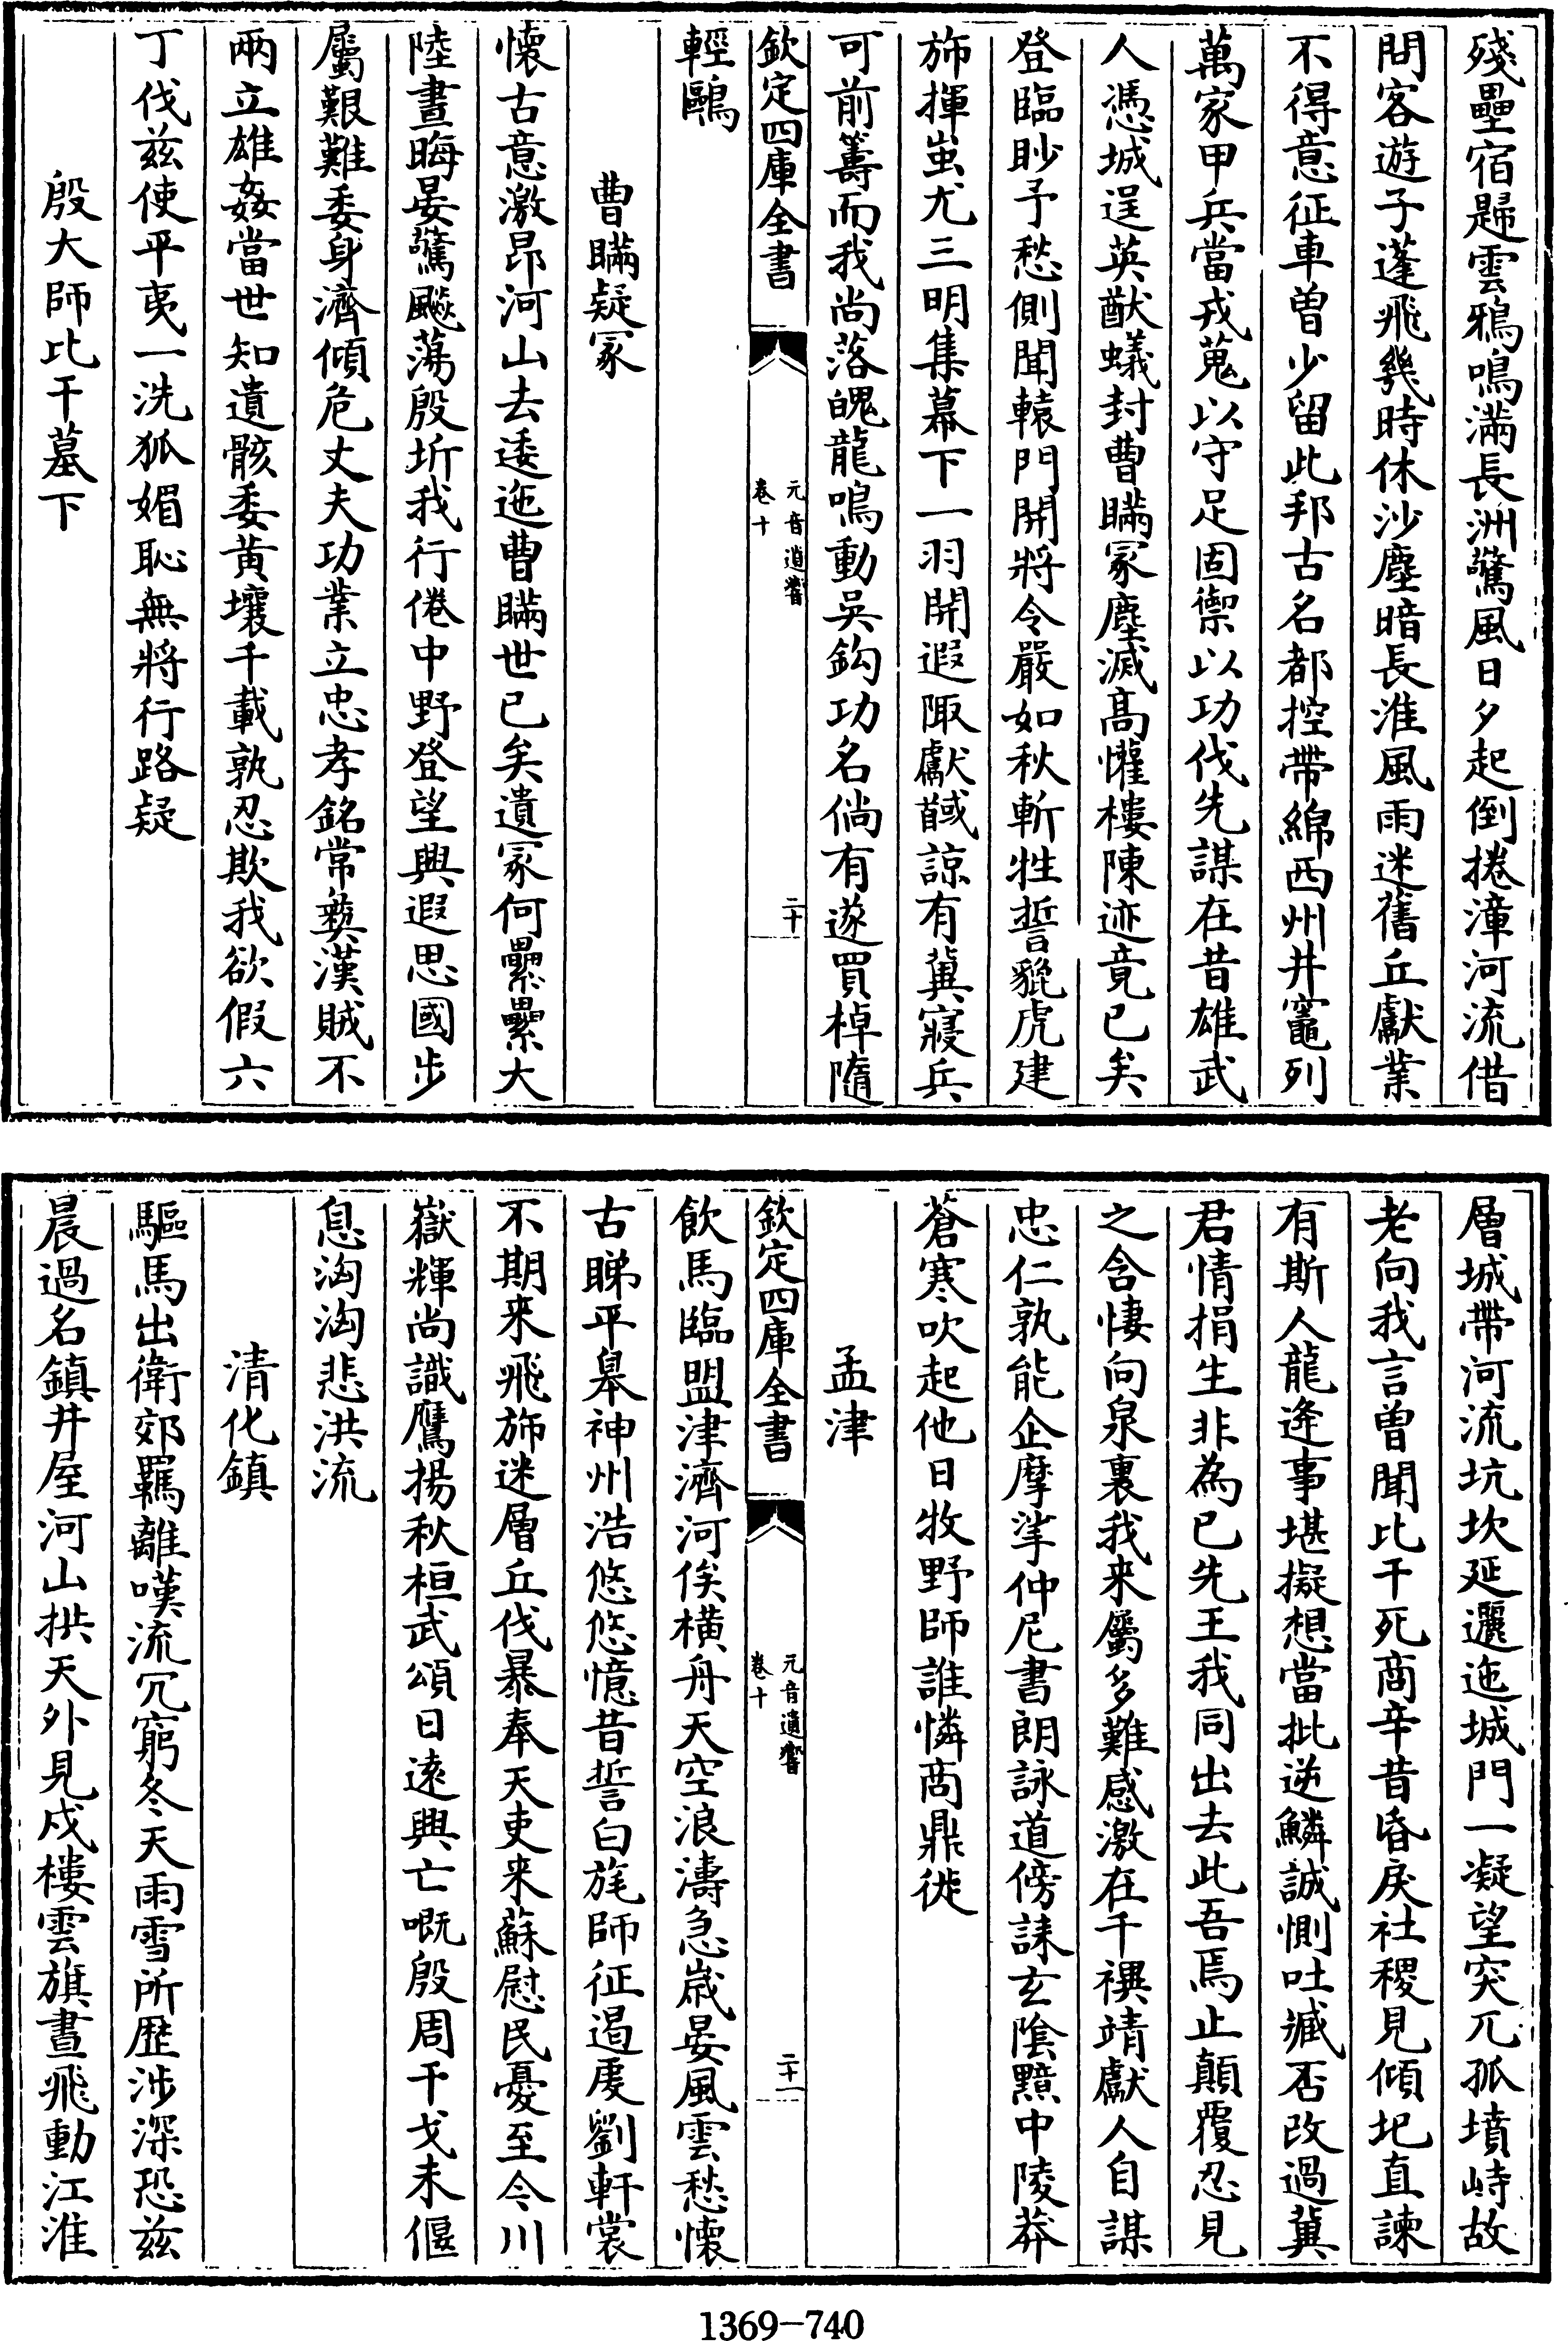 殘壘宿歸雲鴉鳴滿長洲驚風日夕起倒捲漳河流借
問客遊子蓬飛幾時休沙塵暗長淮風雨迷舊丘獻業
不得意征車曾少留此邦古名都控帶綿西州井竈列
萬家甲兵當戎蒐以守足固禦以功伐先謀在昔雄武
人憑城逞英猷蟻封曹瞞冢塵滅高懽樓陳迹竟已矣
登臨眇予愁側聞轅門開將令嚴如秋斬牲誓貔虎建
斾揮蚩尤三明集幕下一羽開遐陬獻馘諒有冀寢兵
可前籌而我尚落魄龍鳴動吳鈎功名倘有遂買棹隨
欽定四庫全書
元音遺響
卷十
二十
輕鷗
曹瞞疑冢
懷古意激昂河山去逶迤曹瞞世已矣遺冢何纍纍大
陸晝晦晏驚飈蕩殷圻我行倦中野登望興遐思國步
屬艱難委身濟傾危丈夫功業立忠孝銘常彜漢賊不
兩立雄姦當世知遺骸委黃壤千載孰忍欺我欲假六
丁伐兹使平夷一洗狐媚恥無將行路疑
殷大師比干墓下
層城帶河流坑坎延邐迤城門一凝望突兀孤墳峙故
老向我言曾聞比干死商辛昔昏戾社稷見傾圮直諫
有斯人龍逄事堪擬想當批逆鱗誠惻吐臧否改過冀
君情捐生非為已先王我同出去此吾焉止顛覆忍見
之含悽向泉裏我来屬多難感激在千禩靖獻人自謀
忠仁孰能企摩挲仲尼書朗詠道傍誄玄陰黯中陵莽
蒼寒吹起他日牧野師誰憐商鼎徙
孟津
欽定四庫全書
元音遺響
卷十
二十一
飲馬臨盟津濟河俟橫舟天空浪濤急嵗晏風雲愁懷
古睇平皋神州浩悠悠憶昔誓白旄師征遏虔劉軒裳
不期来飛斾迷層丘伐暴奉天吏来蘇慰民憂至今川
嶽輝尚識鷹揚秋桓武頌日逺興亡嘅殷周干戈未偃
息洶洶悲洪流
清化鎮
驅馬出衛郊羈離嘆流冗窮冬天雨雪所歴涉深恐兹
晨過名鎮井屋河山拱天外見戍樓雲旗晝飛動江淮
1369-740